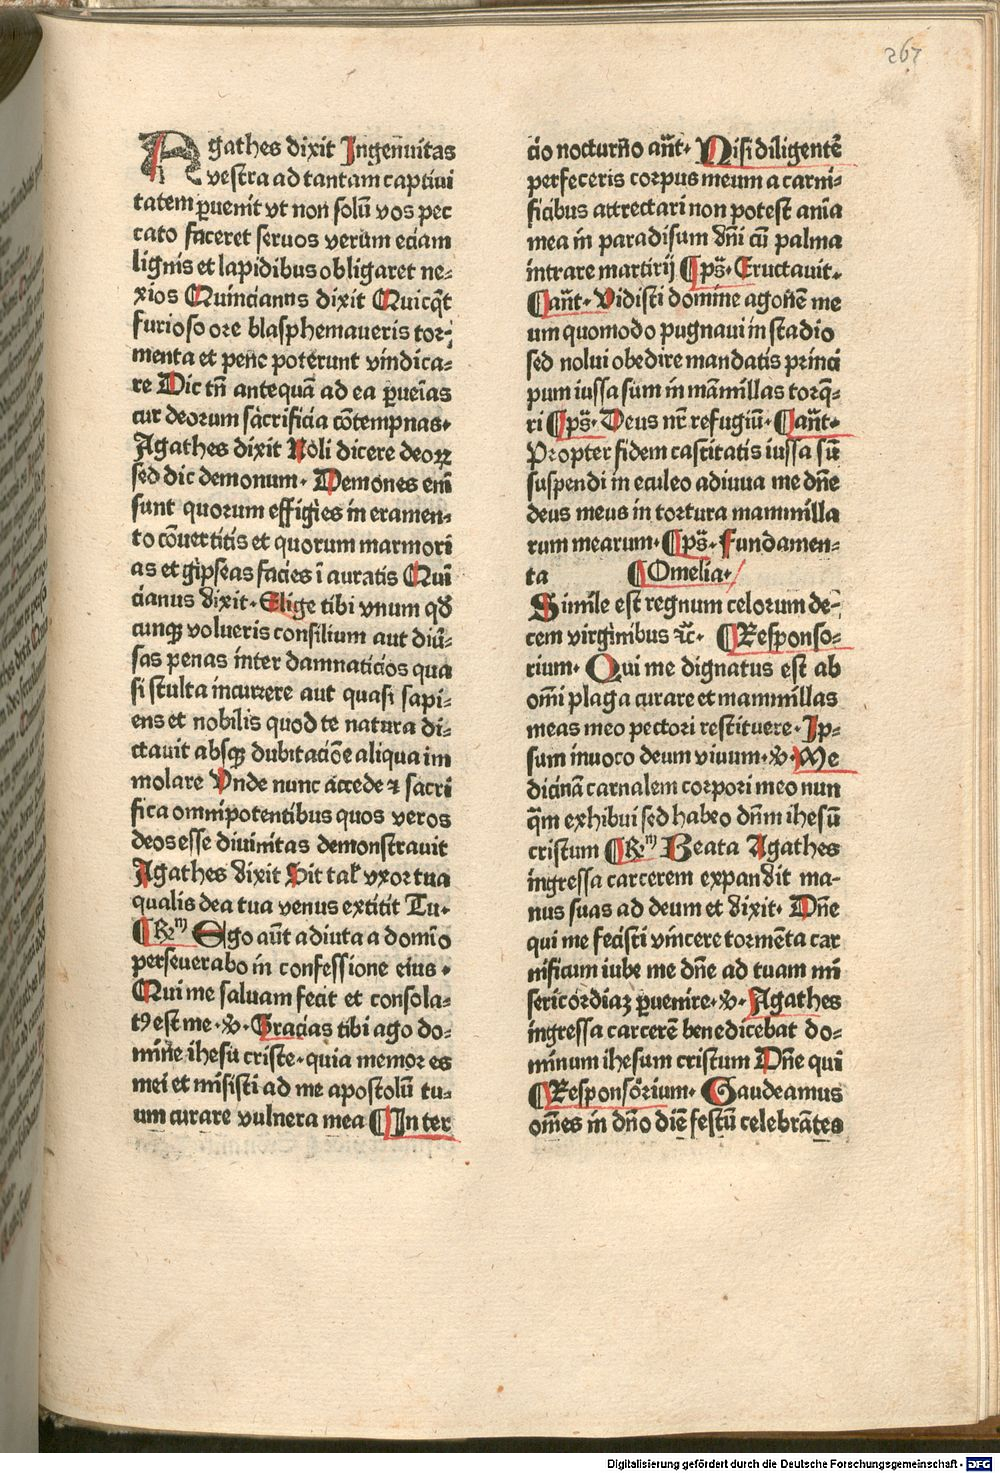 267
Agathes dixit Ingenuitas
vestra ad tantam captiui
tatem ꝑuenit vt non solū vos pec
cato faceret seruos verum eciam
lignis et lapidibus obligaret ne⸗
xios Quincianus dixit Quicq̄t
furioso ore blasphemaueris tor⸗
menta et pene poterunt vindica⸗
re Dic tñ antequā ad ea ꝑueīas
cur deorum sacrificia cōtempnas·
Agathes dixit Noli dicere deoꝝ
sed dic demonum· Demones eni
sunt quorum effigies in eramen⸗
to cōuertitis et quorum marmori
as et gipseas facies ī auratis Qui
cianus dixit· Elige tibi vnum qd̄
cunqꝫ volueris consilium aut diū⸗
sas penas inter damnaticios qua
si stulta incurrere aut quasi sapi⸗
ens et nobilis quod te natura di⸗
ctauit absqꝫ dubitaciōe aliqua im
molare Vnde nunc accede ⁊ sacri
fica omnipotentibus quos veros
deos esse diuinitas demonstrauit
Agathes dixit Sit tal' vxor tua
qualis dea tua venus extitit Tu·
¶Rm Ego aūt adiuta a domīo
perseuerabo in confessione eius·
Qui me saluam fecit et consola⸗
tꝰ est me·℣· Gracias tibi ago do⸗
mine ihesu criste·quia memor es
mei et misisti ad me apostolū tu⸗
um curare vulnera mea ¶In ter
cio nocturño añt· Nisi diligentē
perfeceris corpus meum a carni⸗
ficibus attrectari non potest anīa
mea in paradisum dñi cū palma
intrare martirij ¶ps̄· Eructauit·
¶añt· Vidisti domine agonē me
um quomodo pugnaui in stadio
sed nolui obedire mandatis princi
pum iussa sum in māmillas torq̄⸗
ri ¶ps̄· Deus nr̄ refugiū· ¶añt·
Propter fidem castitatis iussa sū
suspendi in eculeo adiuua me dñe
deus meus in tortura mammilla
rum mearum· ¶ps̄· Fundamen⸗
ta ¶Omelia·
Simile est regnum celorum de⸗
cem virginibus ⁊c̄· ¶Responso⸗
rium· Qui me dignatus est ab
omī plaga curare et mammillas
meas meo pectori restituere· Ip⸗
sum inuoco deum viuum·℣· Me
dicinā carnalem corpori meo nun
q̄m exhibui sed habeo dñm ihesū
cristum ¶Rm Beata Agathes
ingressa carcerem expandit ma⸗
nus suas ad deum et dixit· Dñe
qui me fecisti vincere tormēta car
nificum iube me dñe ad tuam mi
sericordiaꝫ ꝑuenire·℣· Agathes
ingressa carcerē benedicebat do⸗
minum ihesum cristum Dñe qui
¶Responsorium· Gaudeamus
om̄es in dño diē festū celebrātes
Digitalisierung gefördert durch die Deutsche Forschungsgemeinschaft - DFG